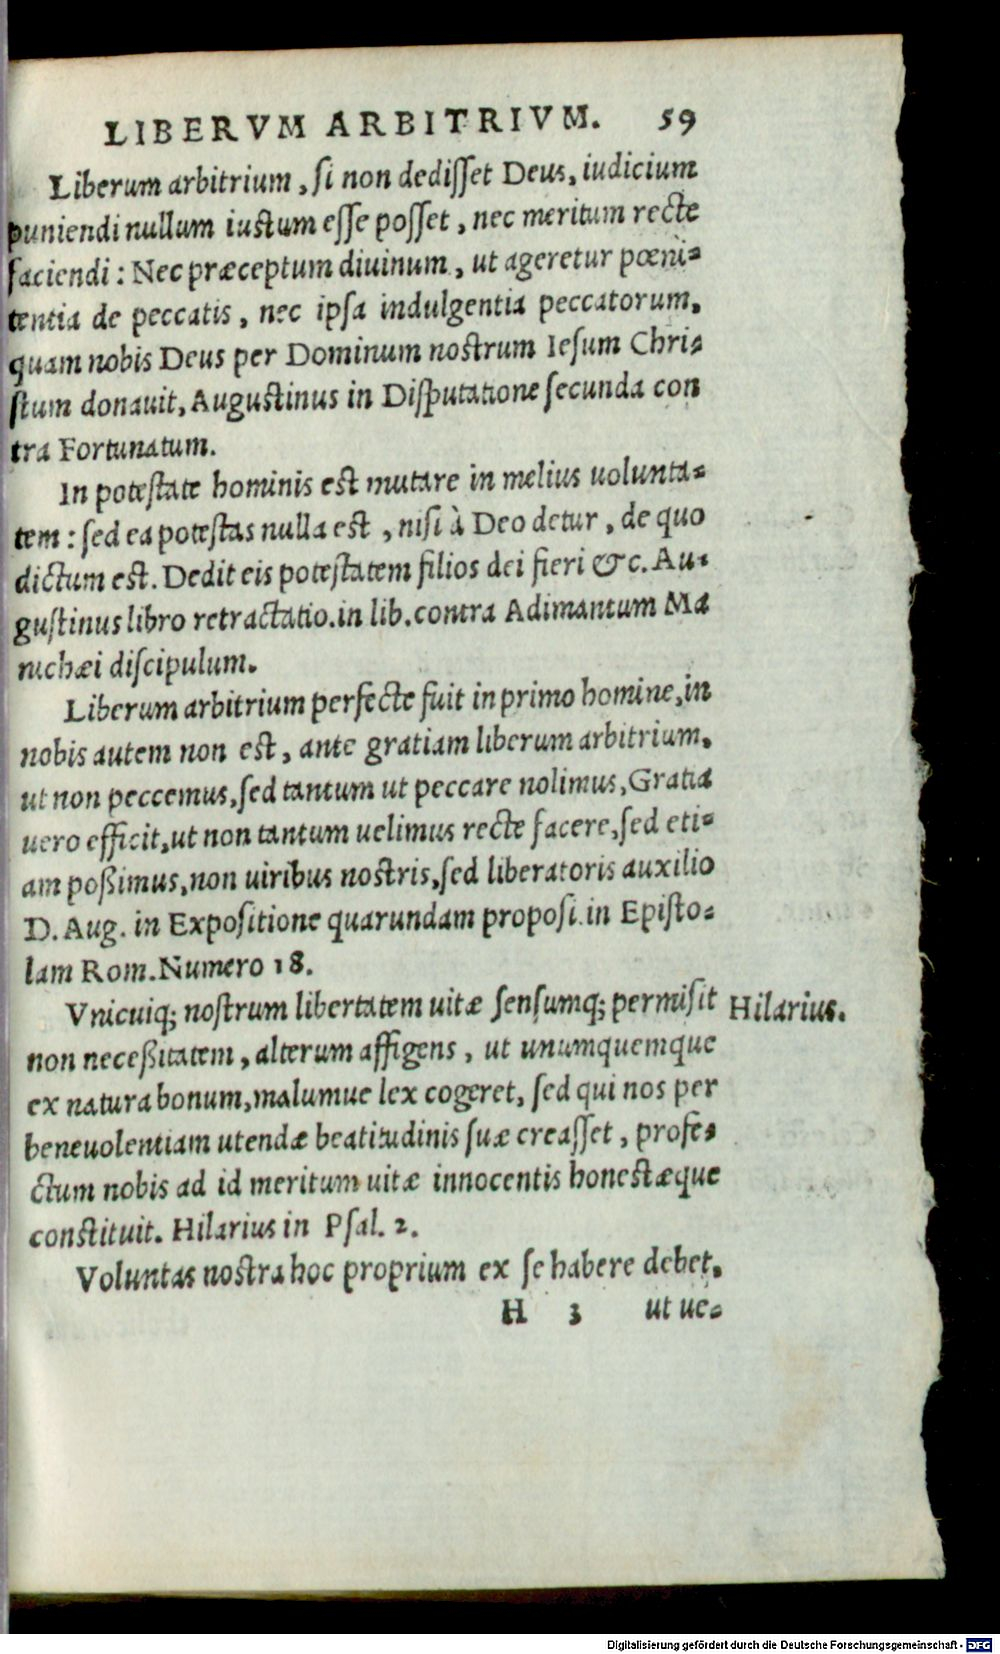 LIBERVM ARBITRIVM. 59
Liberum arbitrium, si non dedisset Deus, iudicium
puniendi nullum iustum esse posset, nec meritum recte
faciendi: Nec præceptum diuinum, ut ageretur pœni-
tentia de peccatis, nec ipsa indulgentia peccatorum,
quam nobis Deus per Dominum nostrum Iesum Chri-
stum donauit, Augustinus in Disputatione secunda con
tra Fortunatum.
In potestate hominis est mutare in melius uolunta-
tem: sed ea potestas nulla est, nisi à Deo detur, de quo
dictum est. Dedit eis potestatem filios dei fieri &c. Au-
gustinus libro retractatio. in lib. contra Adimantum Ma
nichæi discipulum.
Liberum arbitrium perfecte fuit in primo homine, in
nobis autem non est, ante gratiam liberum arbitrium,
ut non peccemus, sed tantum ut peccare nolimus, Gratia
uero efficit, ut non tantum uelimus recte facere, sed eti-
am poßimus, non uiribus nostris, sed liberatoris auxilio
D. Aug. in Expositione quarundam proposi. in Episto-
lam Rom. Numero 18.
Vnicuiq; nostrum libertatem uitæ sensumq; permisit
Hilarius.
non neceßitatem, alterum affigens, ut unumquemque
ex natura bonum, malumue lex cogeret, sed qui nos per
beneuolentiam utendæ beatitudinis suæ creasset, profe-
ctum nobis ad id meritum uitæ innocentis honestæque
constituit. Hilarius in Psal. 2.
Voluntas nostra hoc proprium ex se habere debet,
H 3 ut ue-
Digitalisierung gefördert durch die Deutsche Forschungsgemeinschaft - DFG